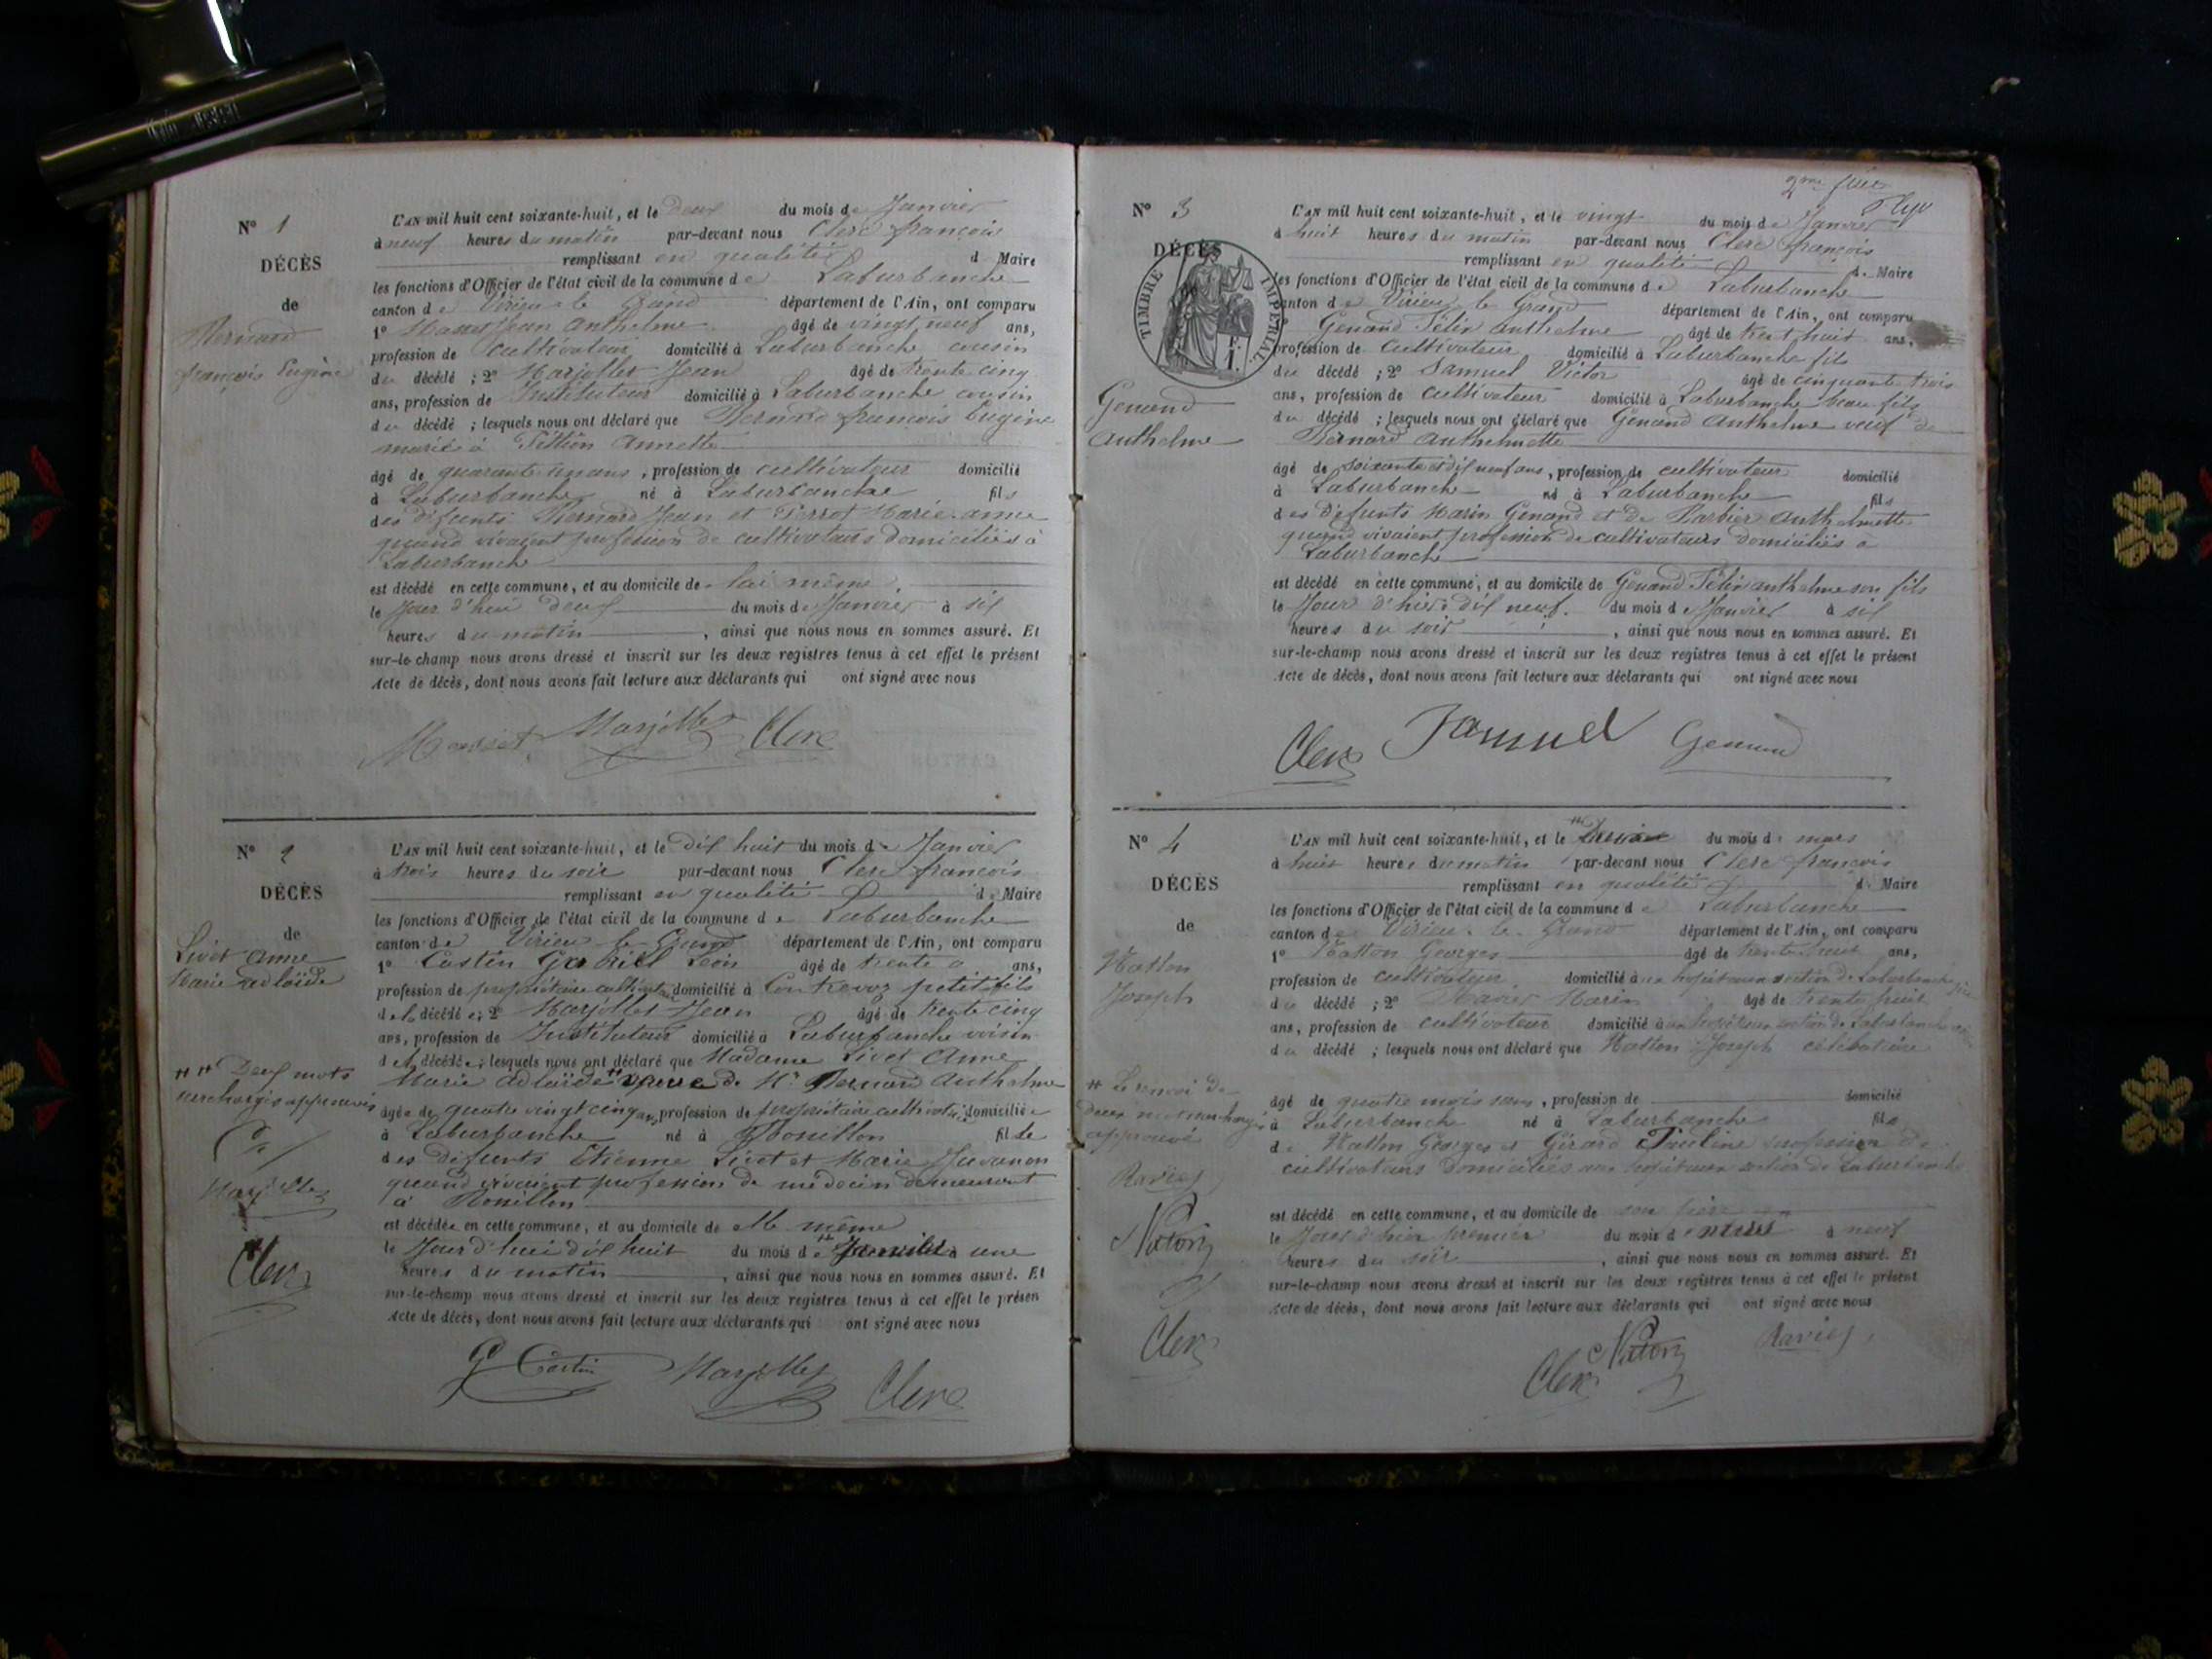 N° 1
DÉCÈS
de
Bernard
françois Eugène
L'AN mil huit cent soixante-huit, et le deux du mois de Janvier
à neuf heures du matin par-devant nous Clerc françois
remplissant en qualité d Maire
les fonctions d'Officier de l'état civil de la commune de Laburbanche
canton de Virieu le Grand département de l'Ain, ont comparu
1° Masset Jean Anthelme âgé de vingt neuf ans,
profession de cultivateur domicilié à Laburbanche cousin
du décédé ; 2° Marjollet Jean âgé de trente cinq
ans, profession de Instituteur domicilié à Laburbanche cousin
du décédé ; lesquels nous ont déclaré que Bernard françois Eugène
marié à Annette
âgé de quarante ans, profession de cultivateur domicilié
à Laburbanche né à Laburbanche fils
des défunts Bernard Jean et Perrot Marie anne
quand vivaient profession de cultivateurs domiciliés à
Laburbanche
est décédé en cette commune, et au domicile de lui même
le Jour d'hui deux du mois de Janvier à six
heures du matin , ainsi que nous nous en sommes assuré. Et
sur-le-champ nous avons dressé et inscrit sur les deux registres tenus à cet effet le présent
Acte de décès, dont nous avons fait lecture aux déclarants qui ont signé avec nous
Masset Marjollet Clerc
N° 2
DÉCÈS
de
Livet Anne
Marie adlaïde
Deux mots
surchargés approuvés
Marjollet
Clerc
L'AN mil huit cent soixante-huit, et le dix huit du mois de Janvier
à trois heures du soir par-devant nous Clerc françois
remplissant en qualité de Maire
les fonctions d'Officier de l'état civil de la commune de Laburbanche
canton de Virieu le Grand département de l'Ain, ont comparu
1° Castin Gabriel Léon âgé de trente ans,
profession de propriétaire cultivateur domicilié à Contrevoz petit fils
de la décédée; 2° Marjollet Jean âgé de trente cinq
ans, profession de Instituteur domicilié à Laburbanche voisin
de la décédée; lesquels nous ont déclaré que Madame Livet Anne
Marie adlaïde veuve de Mr Bernard Anthelme
âgée de quatre vingt cinq ans, profession de propriétaire domiciliée
à Laburbanche né à Rossillon fille
des défunts Etienne Livet et Marie
quand vivaient profession de médecin demeurant
à Rossillon
est décédée en cette commune, et au domicile de elle même
le Jour d'hui dix huit du mois de Janvier à une
heures du matin , ainsi que nous nous en sommes assuré. Et
sur-le-champ nous avons dressé et inscrit sur les deux registres tenus à cet effet le présen
Acte de décès, dont nous avons fait lecture aux déclarants qui ont signé avec nous
G Castin Marjollet Clerc
2me
N° 3
DÉCÈS
TIMBRE IMPÉRIAL
1 F.
Genand
Anthelme
L'AN mil huit cent soixante-huit, et le vingt du mois de Janvier
à huit heures du matin par-devant nous Clerc françois
remplissant en qualité de Maire
les fonctions d'Officier de l'état civil de la commune de Laburbanche
canton de Virieu le Grand département de l'Ain, ont comparu
Genand Félix Anthelme âgé de trent huit ans,
profession de cultivateur domicilié à Laburbanche fils
du décédé ; 2° Samuel Victor âgé de cinquante trois
ans, profession de cultivateur domicilié à Laburbanche beau fils
du décédé ; lesquels nous ont déclaré que Genand Anthelme veuf de
Bernard Anthelmette
âgé de soixante et dix neuf ans, profession de cultivateur domicilié
à Laburbanche né à Laburbanche fils
des défunts Marin Genand et de Barbier Anthelmette
quand vivaient profession de cultivateurs domiciliés à
Laburbanche
est décédé en cette commune, et au domicile de Genand Félix anthelme son fils
le Jour d'hier dix neuf du mois de Janvier à six
heures du soir , ainsi que nous nous en sommes assuré. Et
sur-le-champ nous avons dressé et inscrit sur les deux registres tenus à cet effet le présent
Acte de décès, dont nous avons fait lecture aux déclarants qui ont signé avec nous
Clerc Samuel Genand
N° 4
DÉCÈS
de
Natton
Joseph
Le renvoi de
deux mots surchargés
approuvé
Ravier
Natton
Clerc
L'AN mil huit cent soixante-huit, et le du mois de mars
à huit heures du matin par-devant nous Clerc françois
remplissant en qualité de Maire
les fonctions d'Officier de l'état civil de la commune de Laburbanche
canton de Virieu le Grand département de l'Ain, ont comparu
1° Natton Georges âgé de ans,
profession de cultivateur domicilié section de Laburbanche
du décédé ; 2° Ravier Marin âgé de trente huit
ans, profession de cultivateur domicilié section de Laburbanche
du décédé ; lesquels nous ont déclaré que Natton Joseph célibataire
âgé de quatre mois , profession de domicilié
à Laburbanche né à Laburbanche fils
de Natton Georges et Girard Pauline profession de
cultivateurs domiciliés section de Laburbanche
est décédé en cette commune, et au domicile de son père
le Jour d'hier premier du mois de mars à neuf
heures du soir , ainsi que nous nous en sommes assuré. Et
sur-le-champ nous avons dressé et inscrit sur les deux registres tenus à cet effet le présent
Acte de décès, dont nous avons fait lecture aux déclarants qui ont signé avec nous
Clerc Natton Ravier